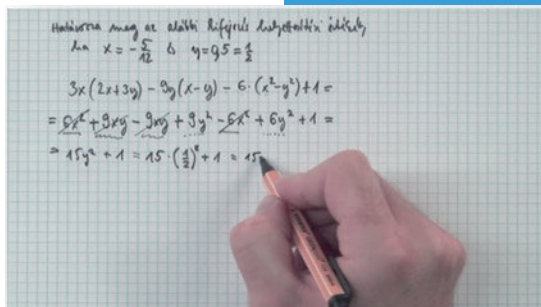 Határozza meg az alábbi kifejezés helyettesítési értékét,
ha x = -5/12 és y = 0,5 = 1/2
3x(2x+3y) - 9y(x-y) - 6·(x²-y²) + 1 =
= 6x² + 9xy - 9xy + 9y² - 6x² + 6y² + 1 =
= 15y² + 1 = 15·(1/2)² + 1 = 15